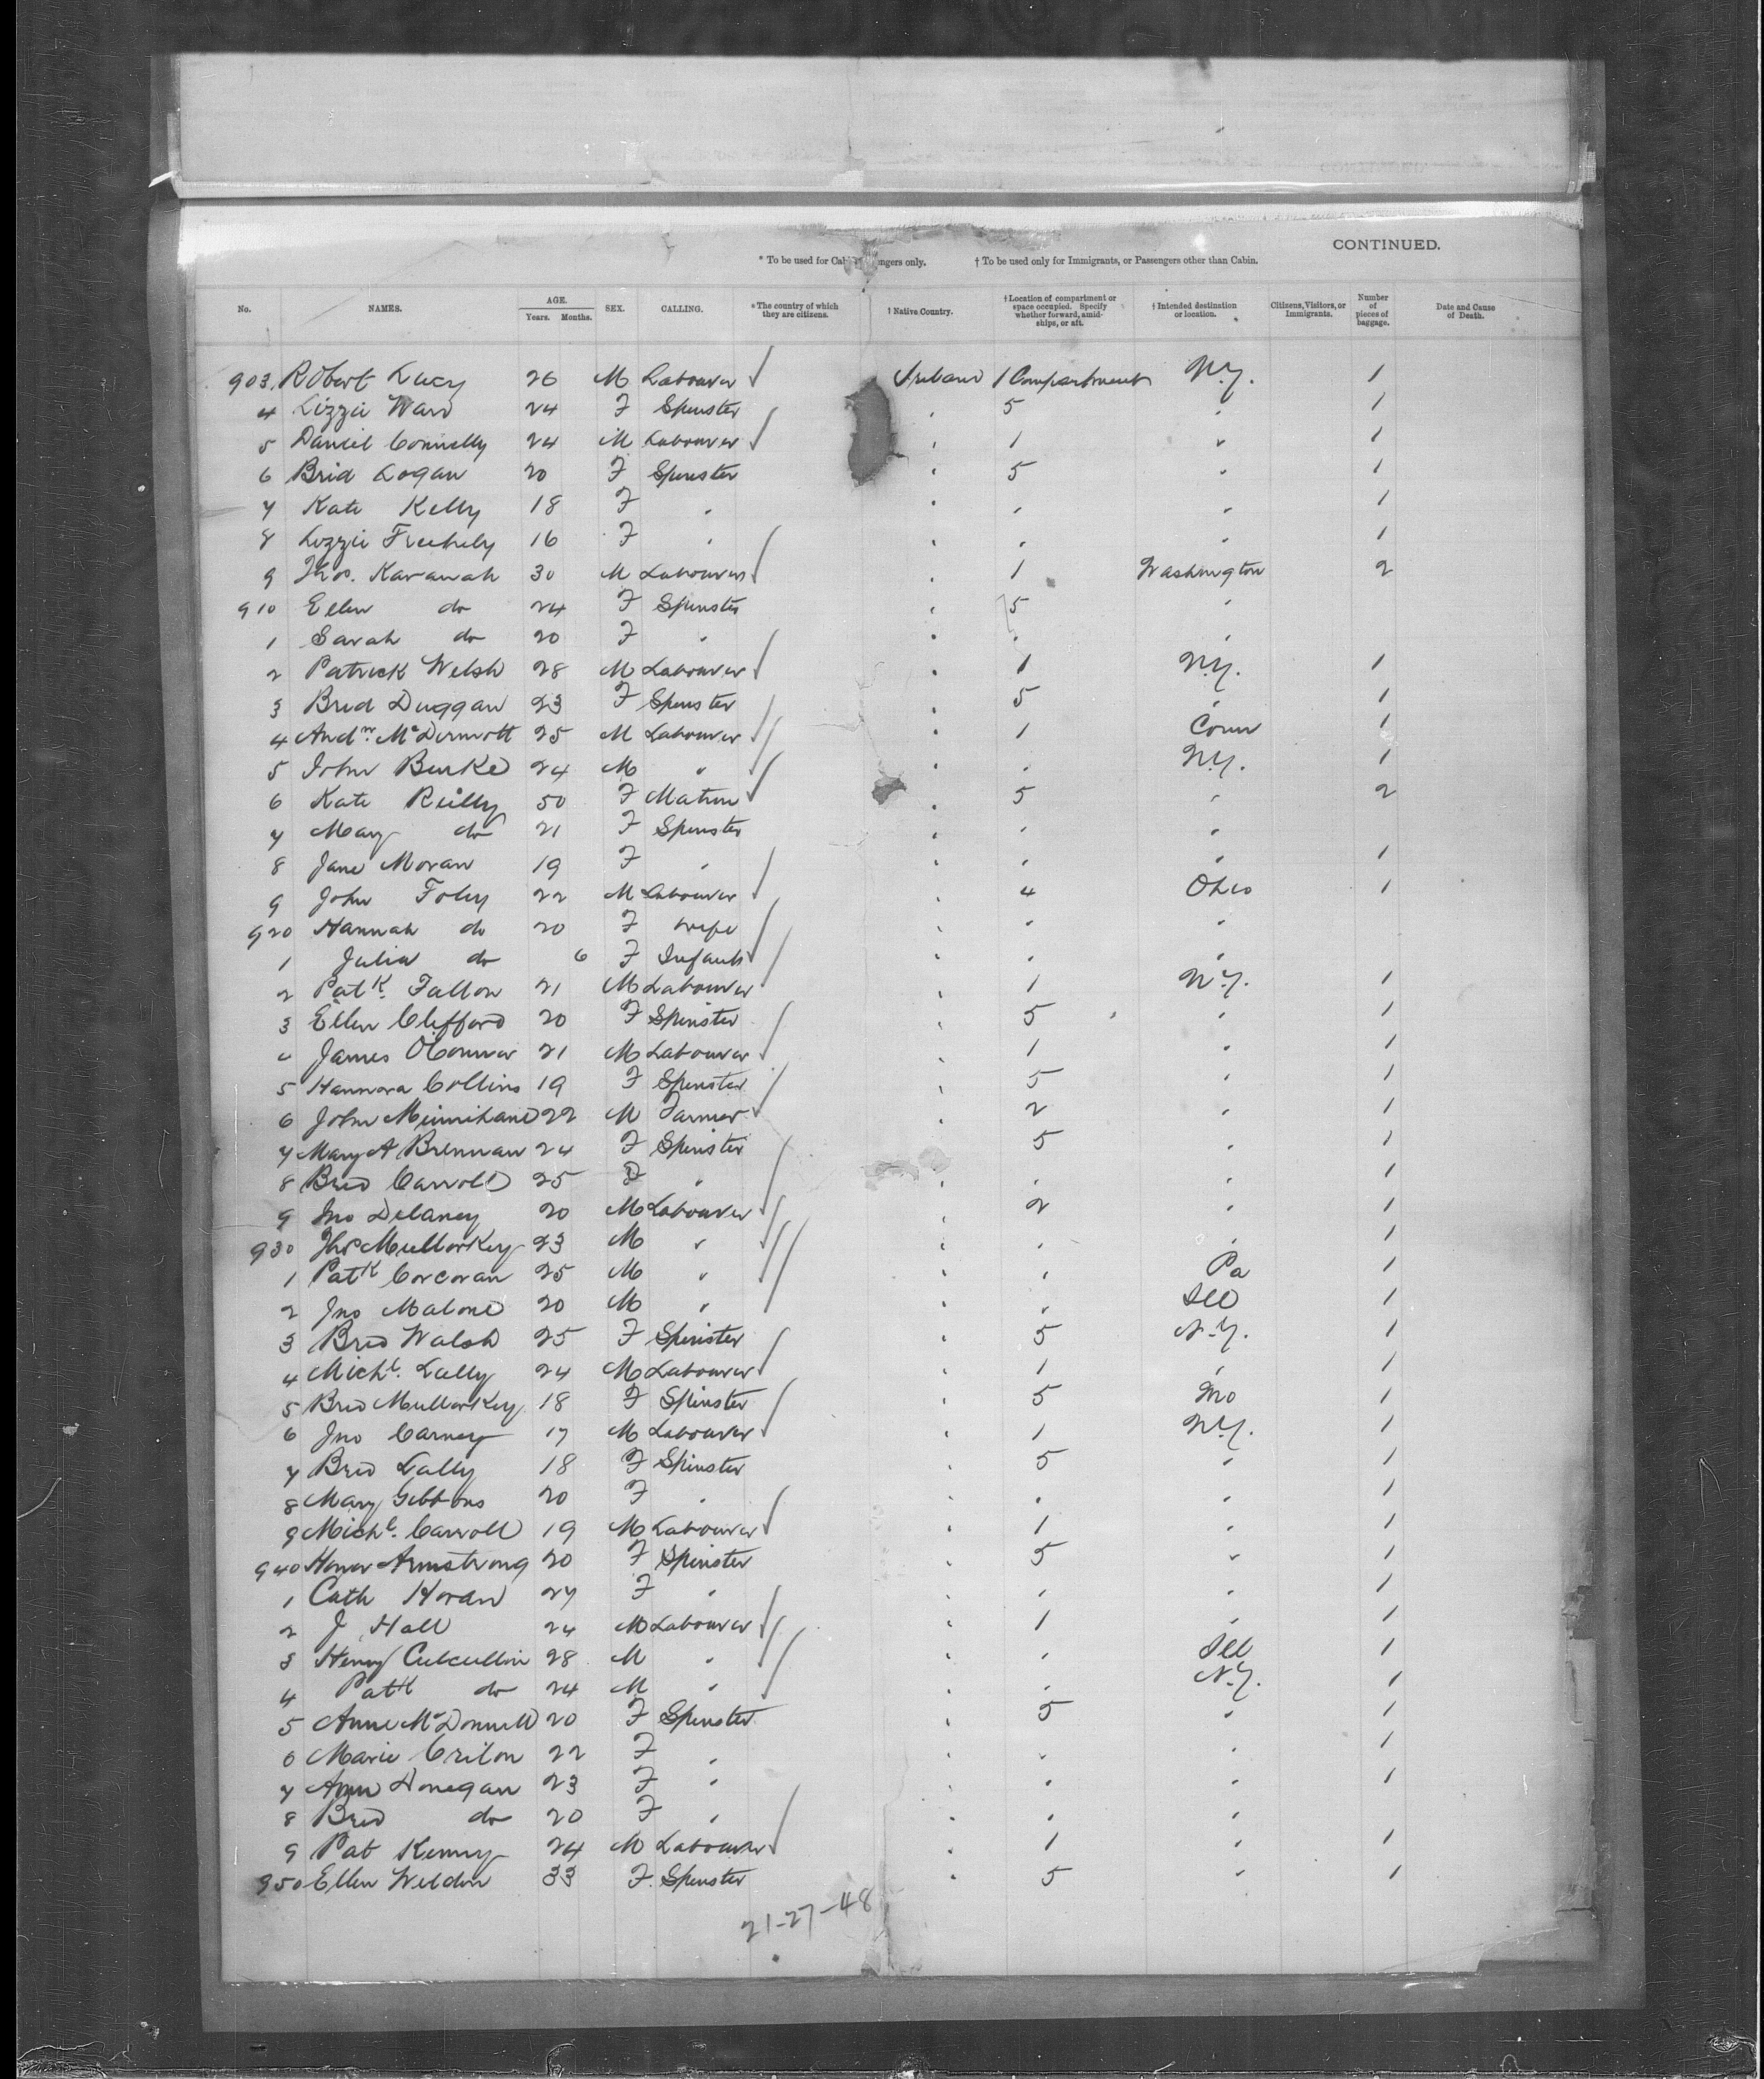 CONTINUED.
* To be used for Cab ngers only. † To be used only for Immigrants, or Passengers other than Cabin.
No. NAMES. AGE. Years. Months. SEX. CALLING. * The country of which they are citizens. † Native Country. † Location of compartment or space occupied. Specify whether forward, amidships, or aft. † Intended destination or location. Citizens, Visitors, or Immigrants. Number of pieces of baggage. Date and Cause of Death.
903. Robert Lucy 26 M Labourer Ireland 1 Compartment N.Y. 1
4 Lizzie Ward 24 F Spinster " 5 " 1
5 Daniel Connelly 24 M Labourer " 1 " 1
6 Brid Logan 20 F Spinster " 5 " 1
7 Kate Kelly 18 F " " " " 1
8 Lizzie 16 F " " " " 1
9 Thos. Kavanah 30 M Labourer " 1 Washington 2
910 Ellen do 24 F Spinster " 5 "
1 Sarah do 20 F " " " "
2 Patrick Welsh 28 M Labourer " 1 N.Y. 1
3 Brid Duggan 23 F Spinster " 5 " 1
4 Andw. McDermott 25 M Labourer " 1 Conn 1
5 John Burke 24 M " " " N.Y. 1
6 Kate Reilly 50 F Matron " 5 " 2
7 Mary do 21 F Spinster " " "
8 Jane Moran 19 F " " " " 1
9 John Foley 22 M Labourer " 4 Ohio 1
920 Hannah do 20 F Wife " " "
1 Julia do 6 F Infant " " "
2 Patk. Fallon 21 M Labourer " 1 N.Y. 1
3 Ellen Clifford 20 F Spinster " 5 " 1
4 James O'Connor 21 M Labourer " 1 " 1
5 Hannora Collins 19 F Spinster " 5 " 1
6 John Minnihane 22 M Farmer " 2 " 1
7 Mary A Brennan 24 F Spinster 5 " 1
8 Brid Carroll 25 F " " " " 1
9 Jno Delaney 20 M Labourer " 2 " 1
930 Thos Mullarkey 23 M " " " " 1
1 Patk Corcoran 25 M " " " Pa 1
2 Jno Malone 20 M " " " Ill 1
3 Brid Walsh 25 F Spinster " 5 N.Y. 1
4 Michl. Lally 24 M Labourer " 1 " 1
5 Brid Mullarkey 18 F Spinster " 5 Mo 1
6 Jno Carney 17 M Labourer " 1 N.Y. 1
7 Brid Lally 18 F Spinster " 5 " 1
8 Mary Gibbons 20 F " " " " 1
9 Michl. Carroll 19 M Labourer " 1 " 1
940 Honor Armstrong 20 F Spinster " 5 " 1
1 Cath Horan 27 F " " " " 1
2 J Hall 24 M Labourer " 1 " 1
3 Henry Culcullin 28 M " " " Ill 1
4 Patk do 24 M " " " N.Y. 1
5 Anne McDonnell 20 F Spinster " 5 " 1
6 Marie Crilon 22 F " " " " 1
7 Ann Donegan 23 F " " " " 1
8 Brid do 20 F " " " "
9 Pat Kenny 24 M Labourer " 1 " 1
950 Ellen Weldon 33 F. Spinster " 5 " 1
21-27-48